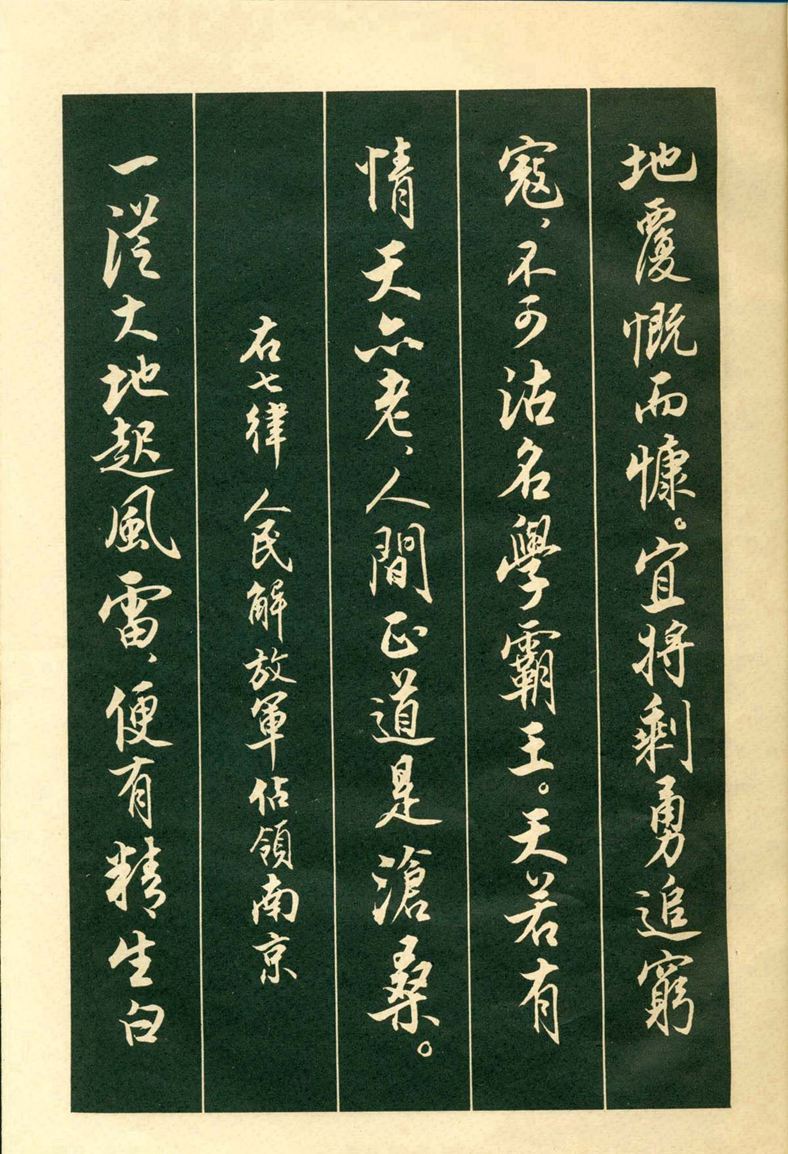 地覆慨而慷。宜将剩勇追窮
寇、不可沽名學霸王。天若有
情天亦老、人間正道是滄桑。
右七律 人民解放軍佔領南京
一從大地起風雷、便有精生白